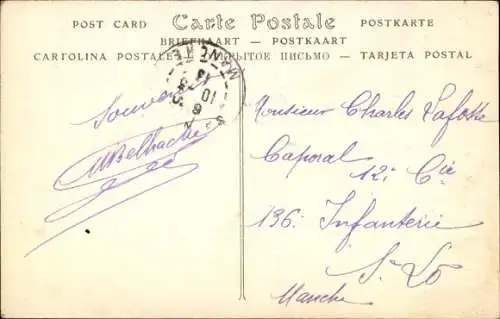 POST CARD Carte Postale POSTKARTE
BRIEFKAART — POSTKAART
CARTOLINA POSTALE — ОТКРЫТОЕ ПИСЬМО — TARJETA POSTAL
MANCHE
Souvenir
Monsieur Charles Lafosse
Caporal
12: Cie
136: Infanterie
St Lô
Manche